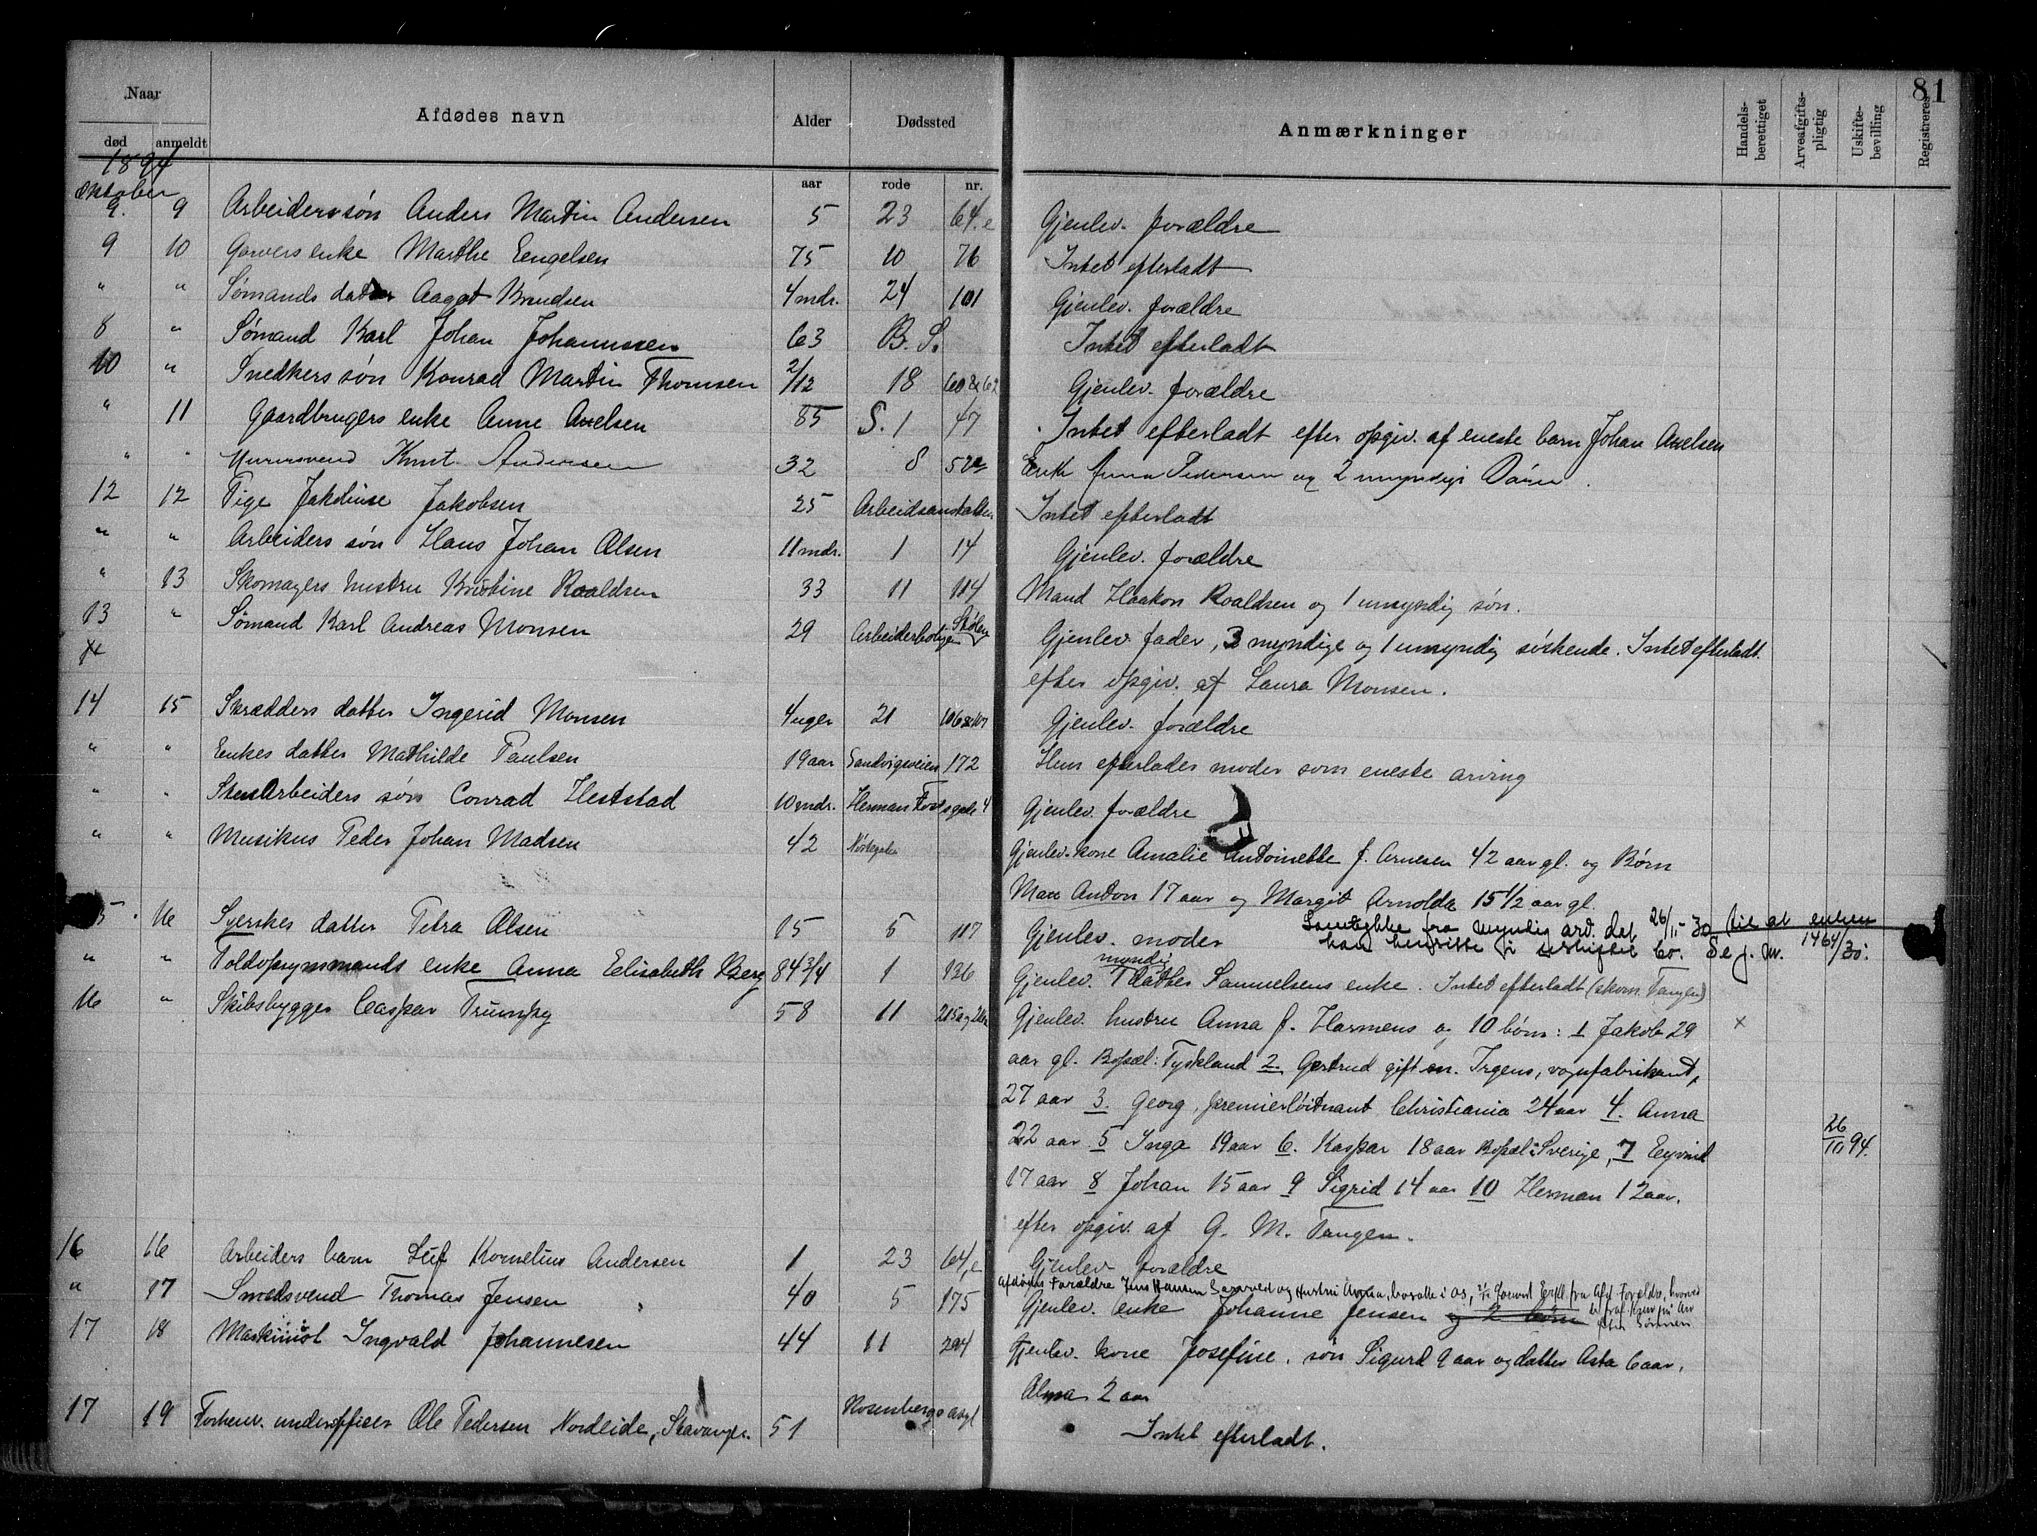 81
Naar
Afdødes navn
Alder
Dødssted
Anmærkninger
Handelsberettiget
Arveafgiftspligtig
Uskiftebevilling
Registreres
død anmeldt
aar rode nr.
1894
Oktober
9. 9 Arbeiders søn Anders Martin Andersen 5 23 64.e Gjenlev. forældre
9 10 Garvers enke Marthe Eengelsen 75 10 76 Intet efterladt
" " Sømands datter Aagot Knudsen 4 mdr. 24 101 Gjenlev. forældre
8 " Sømand Karl Johan Johannssen 63 B. S. Intet efterladt
10 " Snedkers søn Konrad Martin Thomsen 2/12 18 60 & 62 Gjenlev. forældre
" 11 Gaardbrugers enke Anne Axelsen 85 S. 1 47 Intet efterladt efter opgiv. af eneste barn Johan Axelsen
" " Murersvend Knut Andersen 32 8 52 Enk Anna Pedersen og 2 umyndige Børn.
12 12 Pige Jakobine Jakobsen 25 Arbeidsanstalten Intet efterladt
" " Arbeiders søn Hans Johan Olsen 11 mdr. 1 14 Gjenlev. forældre
" 13 Skomagers hustru Kristine Roaldsen 33 11 114 Mand Haakon Roaldsen og 1 umyndig søn.
13 " Sømand Karl Andreas Monsen 29 Arbeiderbolige Gjenlev. fader, 3 myndige og 1 umyndig søskende. Intet efterladt
efter opgiv. af Laura Monsen.
14 15 Skrædders datter Ingerid Monsen 4 uger 21 106 & 107 Gjenlev. forældre
" " Enkes datter Mathilde Paulsen 19 aar Sandvigsveien 172 Hun efterlader moder som eneste arving
" " Stenarbeiders søn Conrad Heststad 10 mdr. Herman Foss gade 4 Gjenlev. forældre
" " Musikus Peder Johan Madsen 42 Gjenlev. kone Amalie Antoinette f. Arnesen 42 aar gl. og Børn
Max Anton 17 aar og Margit Arnolda 15 1/2 aar gl.
Samtykke fra myndig arv. dat 26/11-30 til at enken
kan hensitte i uskiftet bo. Se j. nr. 1464/30.
15 16 Syerskes datter Petra Olsen 15 5 117 Gjenlev. moder
" " Toldopsynmands enke Anna Elisabeth Berg 84 3/4 1 126 Gjenlev. myndig datter Samuelsens enke. Intet efterladt (skom. Tangen)
16 " Skibsbygger Caspar Trumpy 58 11 215 og Gjenlev. hustru Anna f. Harmens og 10 børn: 1 Jakob 29
aar gl. Bopæl: Tyskland 2. Gertrud gift m. Irgens, vognfabrikant,
27 aar 3. Georg, premierløitnant Christiania 24 aar 4. Anna
22 aar 5 Inga 19 aar 6. Kaspar 18 aar Bopæl: Sverige, 7 Eyvind 26/10 94.
17 aar 8 Johan 15 aar 9 Sigrid 14 aar 10 Herman 12 aar.
efter opgiv. af G. M. Tangen.
16 16 Arbeiders barn Leif Kornelius Andersen 1 23 64,e Gjenlev. forældre
Afdødes Forældre Jens Hansen og Hustru Anna, bosatte i Os,
" 17 Smedsvend Thomas Jensen 40 5 175 Gjenlev. enke Johanne Jensen og 2 børn
17 18 Maskinist Ingvald Johannesen 44 11 204 Gjenlev. kone Josefine. søn Sigurd 9 aar og datter Asta 6 aar,
Alma 2 aar
17 19 Forhenv. underofficer Ole Pedersen Nordeide, Stavanger. 51 Rosenbergs asyl Intet efterladt.